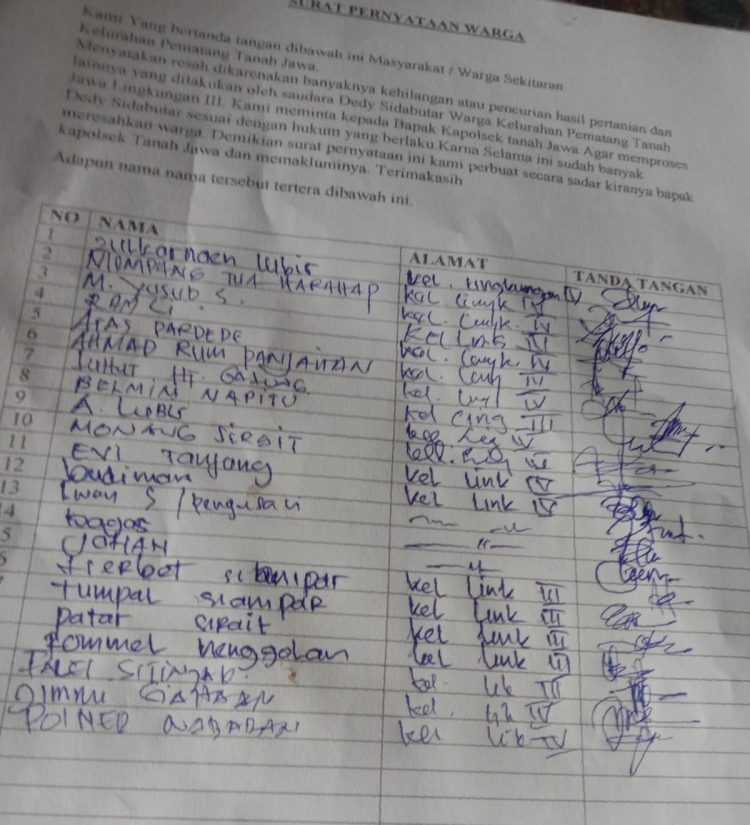 SURAT PERNYATAAN WARGA
Kami Yang bertanda tangan dibawah ini Masyarakat / Warga Sekitaran
Kelurahan Pematang Tanah Jawa.
Menyatakan resah dikarenakan banyaknya kehilangan atau pencurian hasil pertanian dan
lainnya yang dilakukan oleh saudara Dedy Sidabutar Warga Kelurahan Pematang Tanah
Jawa Lingkungan III. Kami meminta kepada Bapak Kapolsek tanah Jawa Agar memproses
Dedy Sidabutar sesuai dengan hukum yang berlaku.Karna Selama ini sudah banyak
meresahkan warga. Demikian surat pernyataan ini kami perbuat secara sadar kiranya bapak
kapolsek Tanah Jawa dan memakluminya. Terimakasih
Adapun nama nama tersebut tertera dibawah ini.
NO NAMA ALAMAT TANDA TANGAN
1 Zulkarnaen lubis kel. lingkungan IV
2 MOMPANG TUA HARAHAP kel. IV
3 M. Yusub S. kel. IV
4 RAMLI KEL LINK IV
5 ATAS PARDEDE kel. IV
6 AHMAD RUM PANJAITAN kel. IV
7 JUHUT HT. kel. IV
8 BELMIN NAPITU kel III
9 A. LUBIS kel IV
10 MONANG SIRAIT kel.
11 EVI Tanjung kel LINK IV
12 budiman kel LINK IV
13 Iwan S
14 togoos
5 JOHAN
6 sianipar kel LINK III
tumpal sianipar kel LINK III
patar sirait kel LINK III
Rommel nenggolan kel LINK III
kel. III
kel. IV
POINER NABABAN kel IV